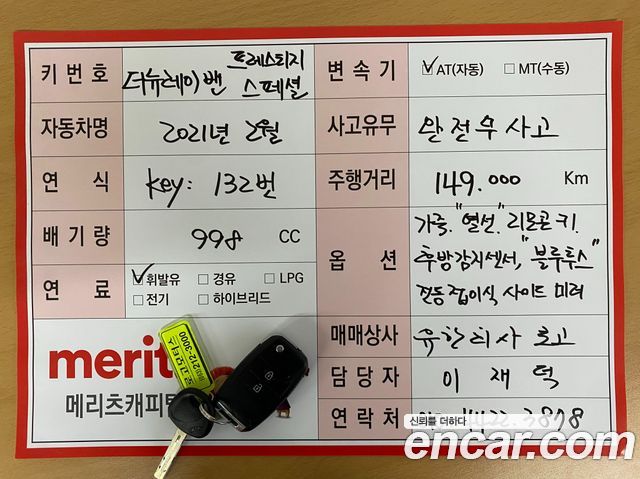 키번호 더뉴레이밴 프레스티지 스페셜
변속기 ☑AT(자동) □MT(수동)
자동차명 2021년 2월
사고유무 완전무사고
연식 key: 132번
주행거리 149.000 Km
배기량 998 CC
옵션 가죽. "열선". 리모콘키.
후방감지센서, "블루투스"
전동접이식 사이드미러
연료 ☑휘발유 □경유 □LPG
□전기 □하이브리드
매매상사 유한회사 로고
담당자 이재덕
연락처 3878
merit
메리츠캐피탈
로고모터스
212-3000
신뢰를 더하다
encar.com